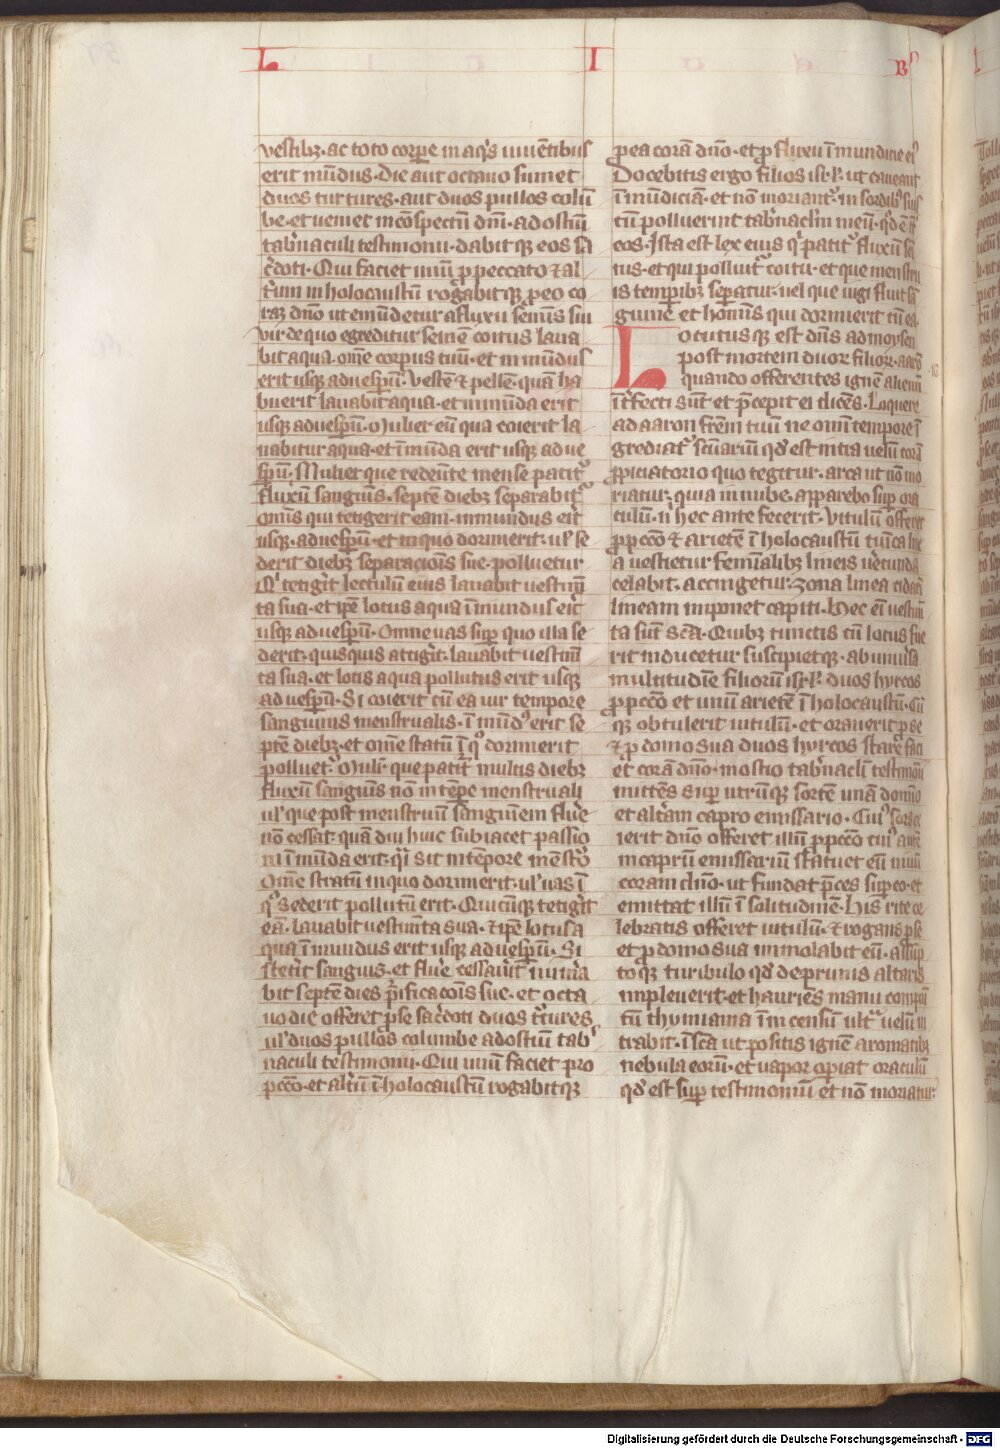 L I Bꝰ
vestibꝫ · ac toto corpe in aq̇s viue̅tibus
erit mu̅dus · Die aut octauo sumet
duos turtures · aut duos pullos colu̅
be · et ueniet in co̅spectu̅ dni̅ · ad ostiu̅
tab̾naculi testimonii · dabitqꝫ eos sa
c̾doti · Qui faciet unu̅ p peccato ⁊ al
t̾um in holocaustu̅ rogabitqꝫ p eo co
ra̅ dn̅o ut emu̅detur a fluxu semi̅s sui
vir de quo egreditur seme̅ coitus laua
bit aqua · om̅e corpus suu̅ · et inmu̅dus
erit usqꝫ ad uesp̅u̅ · Veste̅ ⁊ pelle̅ · qua̅ ha
buerit lauabit aqua · et inmu̅da erit
usqꝫ ad uesp̅u̅ · Mulier cu̅ qua coierit la
uabitur aqua · et i̅mu̅da erit usqꝫ ad ue
sp̅u̅ · Mulier que redeu̅te mense patit̾
fluxu̅ sangui̅s · septe̅ diebꝫ separabit̾
om̅is qui tetigerit eam · inmundus erit
usqꝫ · ad uesp̅u̅ · et in quo dormierit · ul̾ se
derit diebꝫ separacio̅is sue · polluetur
Qi tetig̾it lectulu̅ eius lauabit uestim̅
ta sua · et ip̅e lotus aqua i̅mundus erit
usqꝫ ad uesp̅u̅ · Omne uas sup̅ quo illa se
derit · quisquis attig̾it · lauabit uestim̅
ta sua · et lotus aqua pollutus erit usqꝫ
ad uesp̅u̅ · Si coierit cu̅ ea uir tempore
sanguinis menstrualis · i̅mu̅dꝰ erit se
pte̅ diebꝫ · et om̅e statu̅ i̅ qo dormierit
polluet̾ · Muli̾ · que patit̾ multis diebꝫ
fluxu̅ sangui̅s no̅ in te̅pe menstruali
ul̾ que post menstruu̅ sanguinem flue̾
no̅ cessat · qua̅diu huic subiacet passio
ni i̅mu̅da erit · q̇si sit in te̅pore me̅st̾o
Om̅e stratu̅ in quo dormierit · ul̾ uas i̅
qo sederit pollutu̅ erit · Quicu̅qꝫ tetig̾it
ea̅ · lauabit uestim̅ta sua · ⁊ ip̅e lotus a
qua i̅mundus erit usqꝫ ad uesp̅u̅ · Si
stet̾it sanguis · et flue̾ cessau̾it nu̅m̾a
bit septe̅ dies p̾ificaco̅is sue · et octa
uo die offeret p se sac̾doti duos t̾tures
ul̾ duos pullos columbe ad ostiu̅ tab̾
naculi testimonii · Qui unu̅ faciet pro
pcc̅o · et alt̾u̅ i̅ holocaustu̅ rogabitqꝫ
p ea cora̅ dn̅o · et p fluxu i̅mundicie eiꝰ
Docebitis ergo filios isr̅l · ut caueant
i̅mu̅dicia̅ · et no̅ moriant̾ · in sordibꝫ suis
cu̅ polluerint tab̾nacl̅m meu̅ · qd̾ e̅ it̾
eos · Ista est lex eius qi patit̾ fluxu̅ se̅
nis · et qui polluit̾ coitu · et que menstru
is temp̅ibꝫ sep̅atur · uel que iugi fluit sa̅
guine et homi̅s qui dormierit cu̅ ea ·
Locutusqꝫ est dn̅s ad moysen
post mortem duoꝝ filioꝝ · aaro̅ · 16
quando offerentes igne̅ alienu̅
int̾fecti su̅t et p̾cepit ei dice̅s · Loquere
ad aaron fr̅em tuu̅ ne omi̅ tempore i̅
grediat̾ sc̅uariu̅ qd̾ est intra uelu̅ cora̅
ppiciatorio quo tegitur · arca ut no̅ mo
riatur · quia in nube · apparebo sup̅ ora
culu̅ · n̾ hec ante fecerit · Vitulu̅ offeret
p pcc̅o ⁊ ariete̅ i̅ holocaustu̅ tunica line
a uestietur femi̅alibꝫ lineis ue̾cunda
celabit · accingetur · zona linea cidari̅
lineam imponet capiti · Hec ei̅ uestim̅
ta su̅t sc̅a · Quibꝫ cunctis cu̅ lotus fue
rit inducetur suscipietqꝫ · ab uniu̾sa
multitudi̅e filiorum isr̅l · duos hyrcos
p pcc̅o et unu̅ ariete̅ i̅ holocaustu̅ · Cu̅
qꝫ obtulerit uitulu̅ · et orauerit p se
⁊ p domo sua duos hyrcos stare̾ faci
et cora̅ dn̅o · in ostio tab̾nacl̅i testimonii
mitte̅s sup̅ utru̅qꝫ sorte̅ una̅ domi̅o
et alt̾am capro emissario · Cuiꝰ sors ex
ierit dn̅o offeret illu̅ p pcc̅o cuiꝰ aute̅
in capru̅ emissariu̅ statuet eu̅ uiuu̅
coram dn̅o · ut fundat p̾ces sup̅ eo · et
emittat illu̅ i̅ solitudine̅ · His rite ce
lebratis offeret uitulu̅ · ⁊ rogans p se
et p domo sua immolabit eu̅ · assu̅p
toqꝫ turibulo qd̾ de prunis altaris
impleuerit · et haurie̅s manu compo̅i
tu̅ thymiama i̅ incensu̅ ult̾ uelu̅ in
trabit · i̅ sc̅a ut positis igne̅ aromatibꝫ
nebula eoru̅ · et uapor opiat oraculu̅
qd̾ est sup̅ testimoniu̅ et no̅ moriatur ·
Digitalisierung gefördert durch die Deutsche Forschungsgemeinschaft - DFG